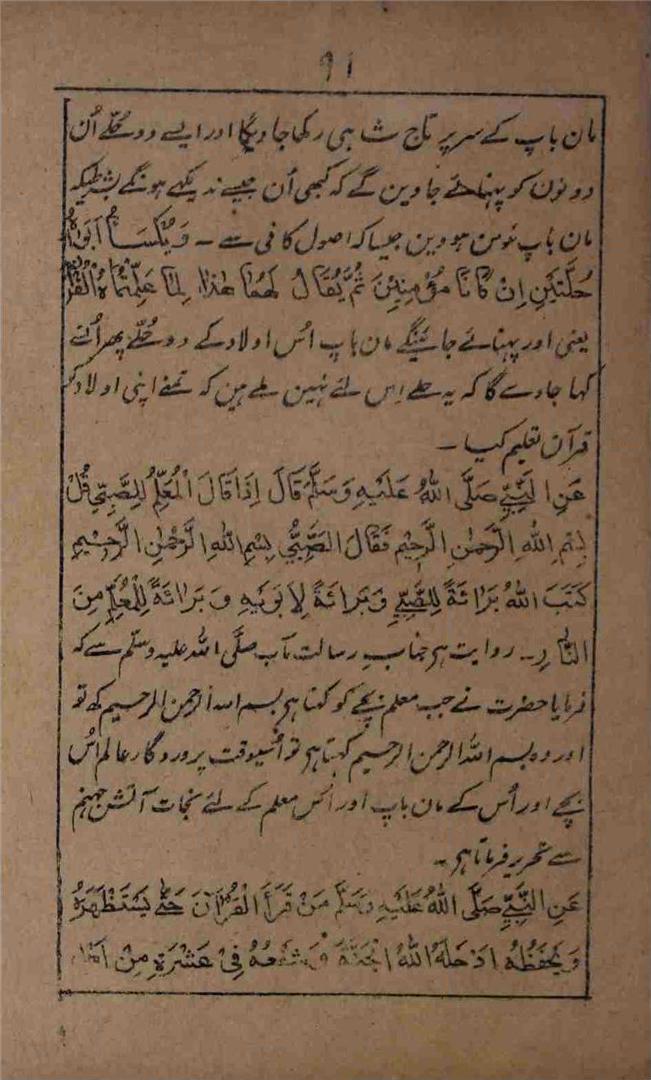 ۹۱
مان باپ کے سر پر تاج شاہی رکھا جاویگا اور ایسے دو حُلّے اُن
دونون کو پہنائے جاوین گے کہ کبھی اُن جیسے ندیکہے ہونگے بشرطیکہ
مان باپ مومن ہووین جیسا کہ اصول کافی سے ۔ وَيُكْسَا أَبَوَاهُ
حُلَّتَيْنِ اِنْ كَانَا مُؤْمِنِيْنَ ثُمَّ يُقَالُ لَهُمَا هٰذَا لِمَا عَلَّمْتُمَاهُ الْقُرْاٰنَ
یعنی اور پہنائے جائینگے مان باپ اُس اولاد کے دو حُلّے پھر اُنسے
کہا جاوے گا کہ یہ حلے اِس لئے تمہین ملے ہین کہ تمنے اپنی اولاد کو
قرآن تعلیم کیا ۔
عَنِ النَّبِيِّ صَلَّى اللهُ عَلَيْهِ وَسَلَّمْ قَالَ اِذَا قَالَ الْمُعَلِّمُ لِلصَّبِيِّ قُلْ
بِسْمِ اللهِ الرَّحْمٰنِ الرَّحِيْمِ فَقَالَ الصَّبِيُّ بِسْمِ اللهِ الرَّحْمٰنِ الرَّحِيْمِ
كَتَبَ اللهُ بَرَائَةً لِلصَّبِيِّ وَبَرَائَةً لِاَبَوَيْهِ وَبَرَائَةً لِلْمُعَلِّمِ مِنَ
النَّارِ ۔ روایت ہی جناب رسالت مآب صلّی اللہ علیہ وسلّم سے کہ
فرمایا حضرت نے جب معلم بچے کو کہتا ہی بسم اللہ الرحمن الرحیم کہ تو
اور وہ بسم اللہ الرحمن الرحیم کہتا ہی تو اُسیوقت پروردگار عالم اُس
بچے اور اُس کے مان باپ اور اُس معلم کے لئے نجات آتش جہنم
سے تحریر فرماتا ہی ۔
عَنِ النَّبِيِّ صَلَّى اللهُ عَلَيْهِ وَسَلَّمْ مَنْ قَرَأَ الْقُرْاٰنَ حَتّٰى يَسْتَظْهِرَهُ
وَيَحْفَظُهُ اَدْخَلَهُ اللهُ الْجَنَّةَ وَشَفَّعَهُ فِيْ عَشْرَةٍ مِنْ